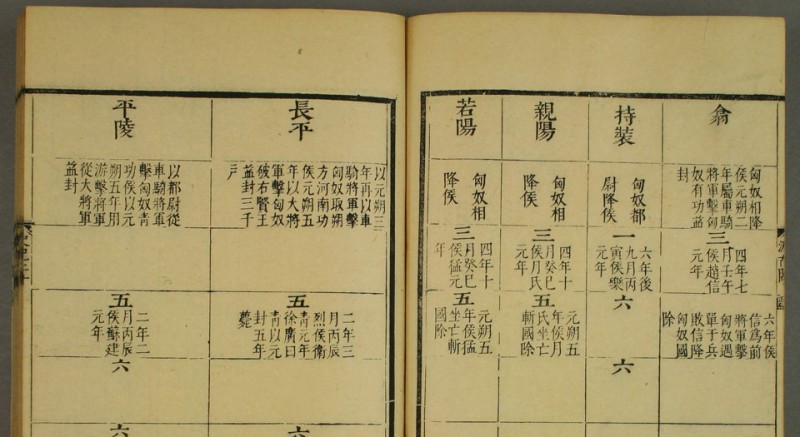 翕
匈奴相降
侯元朔二
年屬車騎
將軍擊匈
奴有功益
封
三
四年七
月壬午
侯趙信
元年
六年侯
信爲前
將軍擊
匈奴遇
單于兵
敗信降
匈奴國
除
持裝
匈奴都
尉降侯
一
六年後
九月丙
寅侯樂
元年
六
六
親陽
匈奴相
降侯
三
四年十
月癸巳
侯月氏
元年
五
元朔五
年侯月
氏坐亡
斬國除
若陽
匈奴相
降侯
三
四年十
月癸巳
侯猛元
年
五
元朔五
年侯猛
坐亡斬
國除
長平
以元朔三
年再以車
騎將軍擊
匈奴取朔
方河南功
侯元朔五
年以大將
軍擊匈奴
破右賢王
益封三千
戶
五
二年三
月丙辰
烈侯衛
青元年
徐廣曰
青以元
封五年
薨
六
平陵
以都尉從
車騎將軍
擊匈奴青
功侯以元
朔五年用
游擊將軍
從大將軍
益封
五
二年二
月丙辰
侯蘇建
元年
六
六